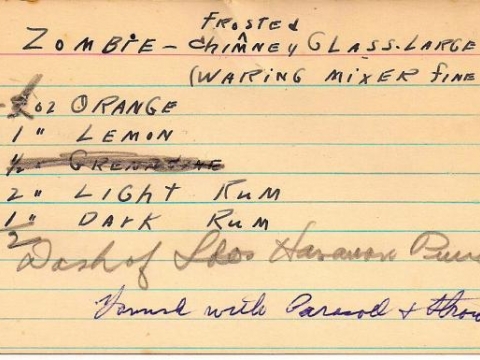 FROSTED
ZOMBIE - CHIMNEY GLASS. LARGE
(WARING MIXER FINE
oz ORANGE
1 " LEMON
1/2 " GRENADINE
2 " LIGHT RUM
1 " DARK RUM
2
Dash of Havanan
with Parasol &